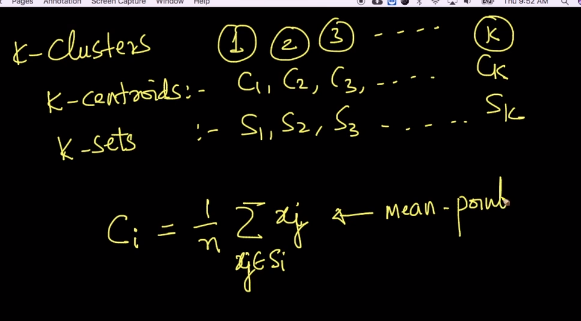 Pages Annotation Screen Capture Window Help Thu 9:52 AM
K-Clusters 1 2 3 ---- K
K-centroids:- C1, C2, C3, ---- CK
K-sets :- S1, S2, S3 ------ SK
Ci = 1/n Σ xj ← mean-point
xj∈Si